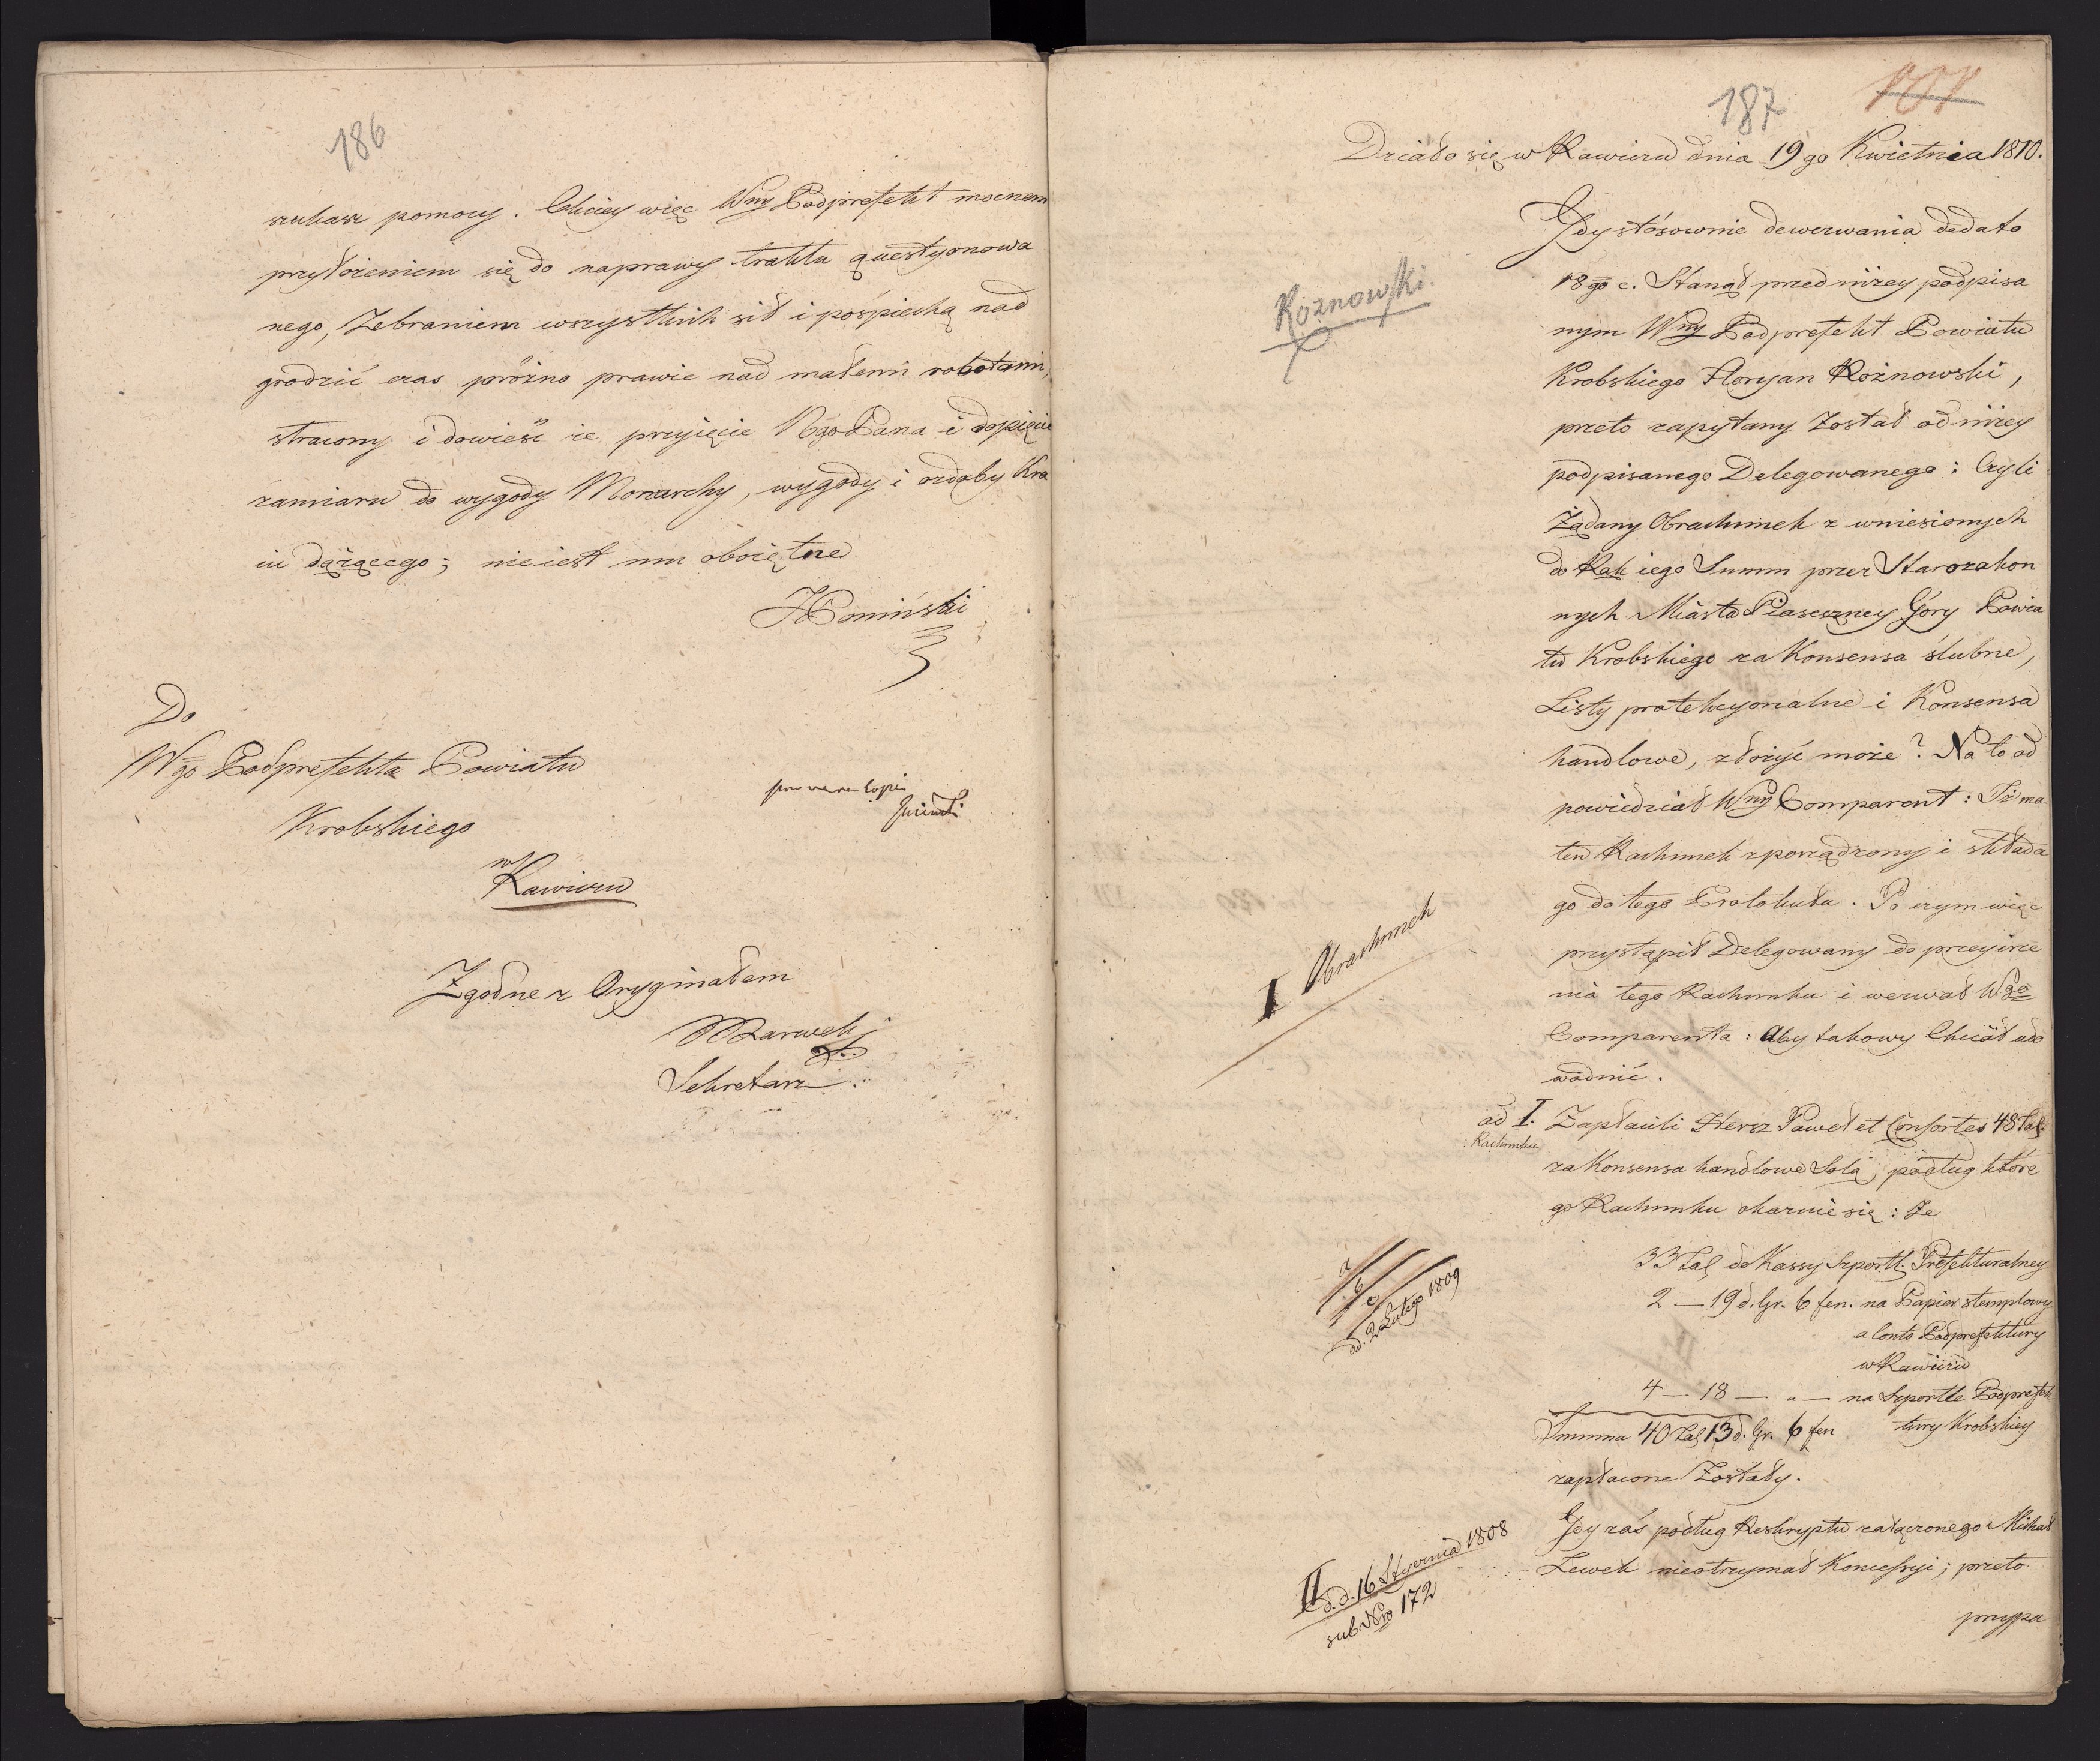 186
szukasz pomocy. Chciey więc Wny Podprefekt mocnem
przyłożeniem się do naprawy traktu questyonowa
nego, Zebraniem wszystkich sił i pośpiechą nad
grodzić czas próżno prawie nad małemi robotami,
stracony i dowieść ze przyięcie Ngo Pana i dopięcie
zamiaru do wygody Monarchy, wygody i ozdoby Kra
iu dążącego; nieiest mu oboiętne
Poniński
Do
Wgo Podprefekta Powiatu
Krobskiego
w
Rawiczu
pro vera copia
Zgodne z Oryginałem
Sekretarz
187
101
Działo się w Rawiczu dnia 19go Kwietnia 1810.
Rożnowski.
Gdy stósownie do wezwania dedato
18go c. Stanął przed niżey podpisa
nym Wny Podprefekt Powiatu
Krobskiego Floryan Rożnowski,
przeto zapytany Został od niżey
podpisanego Delegowanego: Czyli
Żądany Obrachunek z wniesionych
do Rąk iego Summ przez Starozakon
nych Miasta Piaseczney Góry Powia
tu Krobskiego za Konsensa ślubne,
Listy protekcyonalne i Konsensa
handlowe, złożyć może? Na to od
powiedział Wny Comparent: Iż ma
ten Rachunek zporządzony i składa
go do tego Protokułu. Po czym więc
I Obrachunek
przystąpił Delegowany do przeyirze
nia tego Rachunku i wezwał Wgo
Comparenta: Aby takowy Chciał udo
wodnić.
ad I. Zapłacili Hersz Paweł et Consortes 48 Tal.
Rachunku
za Konsensa handlowe Solą, podług które
go Rachunku okazuie się: Ze
33 Tal do Kassy Szportl. Prefekturalney
a b c
dd. 2 Lutego 1809
2 — 19 d. Gr. 6 fen. na Papier stemplowy
a Conto Podprefektury
w Rawiczu
4 — 18 — „ — na Szportle Podprefek
tury Krobskiey
Summa 40 Tal 13 d. Gr. 6 fen
zapłacone Zostały.
II d.d. 16 Stycznia 1808
sub Nro 172
Gdy zaś podług Reskryptu załączonego Michał
Lewek nieotrzymał Koncessyi; przeto
przypa